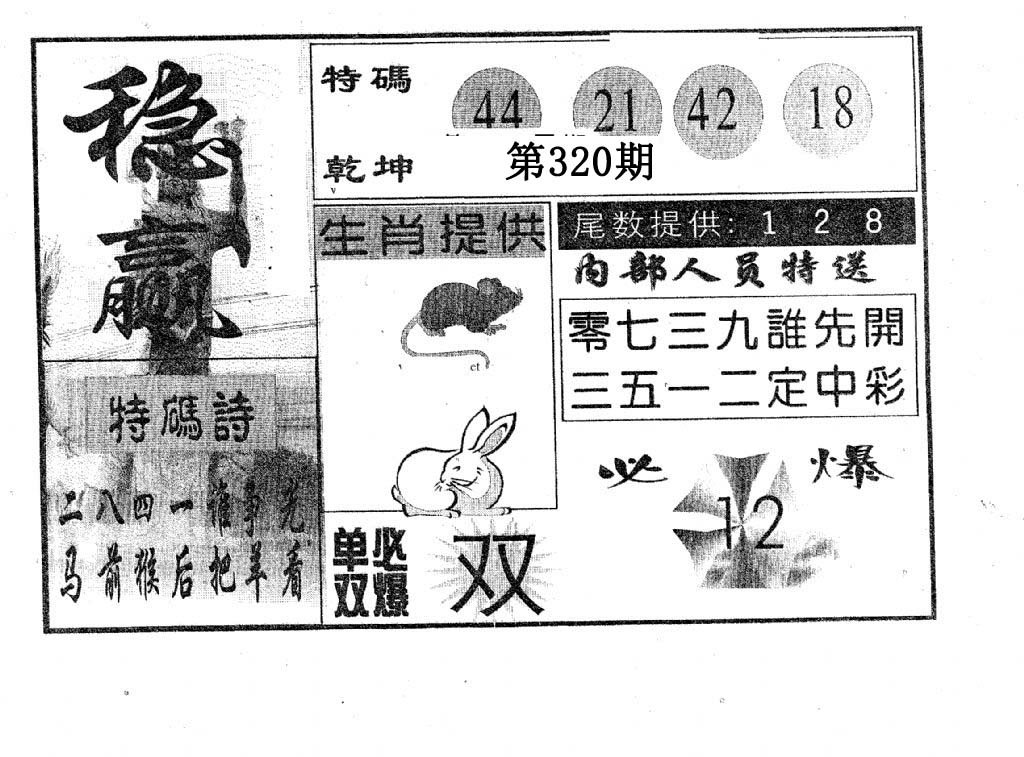 稳赢
特碼
44 21 42 18
乾坤
第320期
生肖提供
尾数提供: 1 2 8
内部人员特送
零七三九誰先開
三五一二定中彩
特碼詩
二八四一誰爭先
马前猴后把羊看
必 爆
12
单双
必爆
双